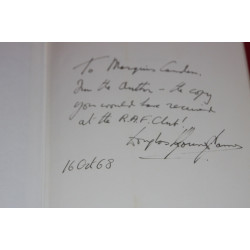 To Marquis Camden.
From the Author – the copy
you would have received
at the R.A.F. Club!
Douglas
16 Oct 68